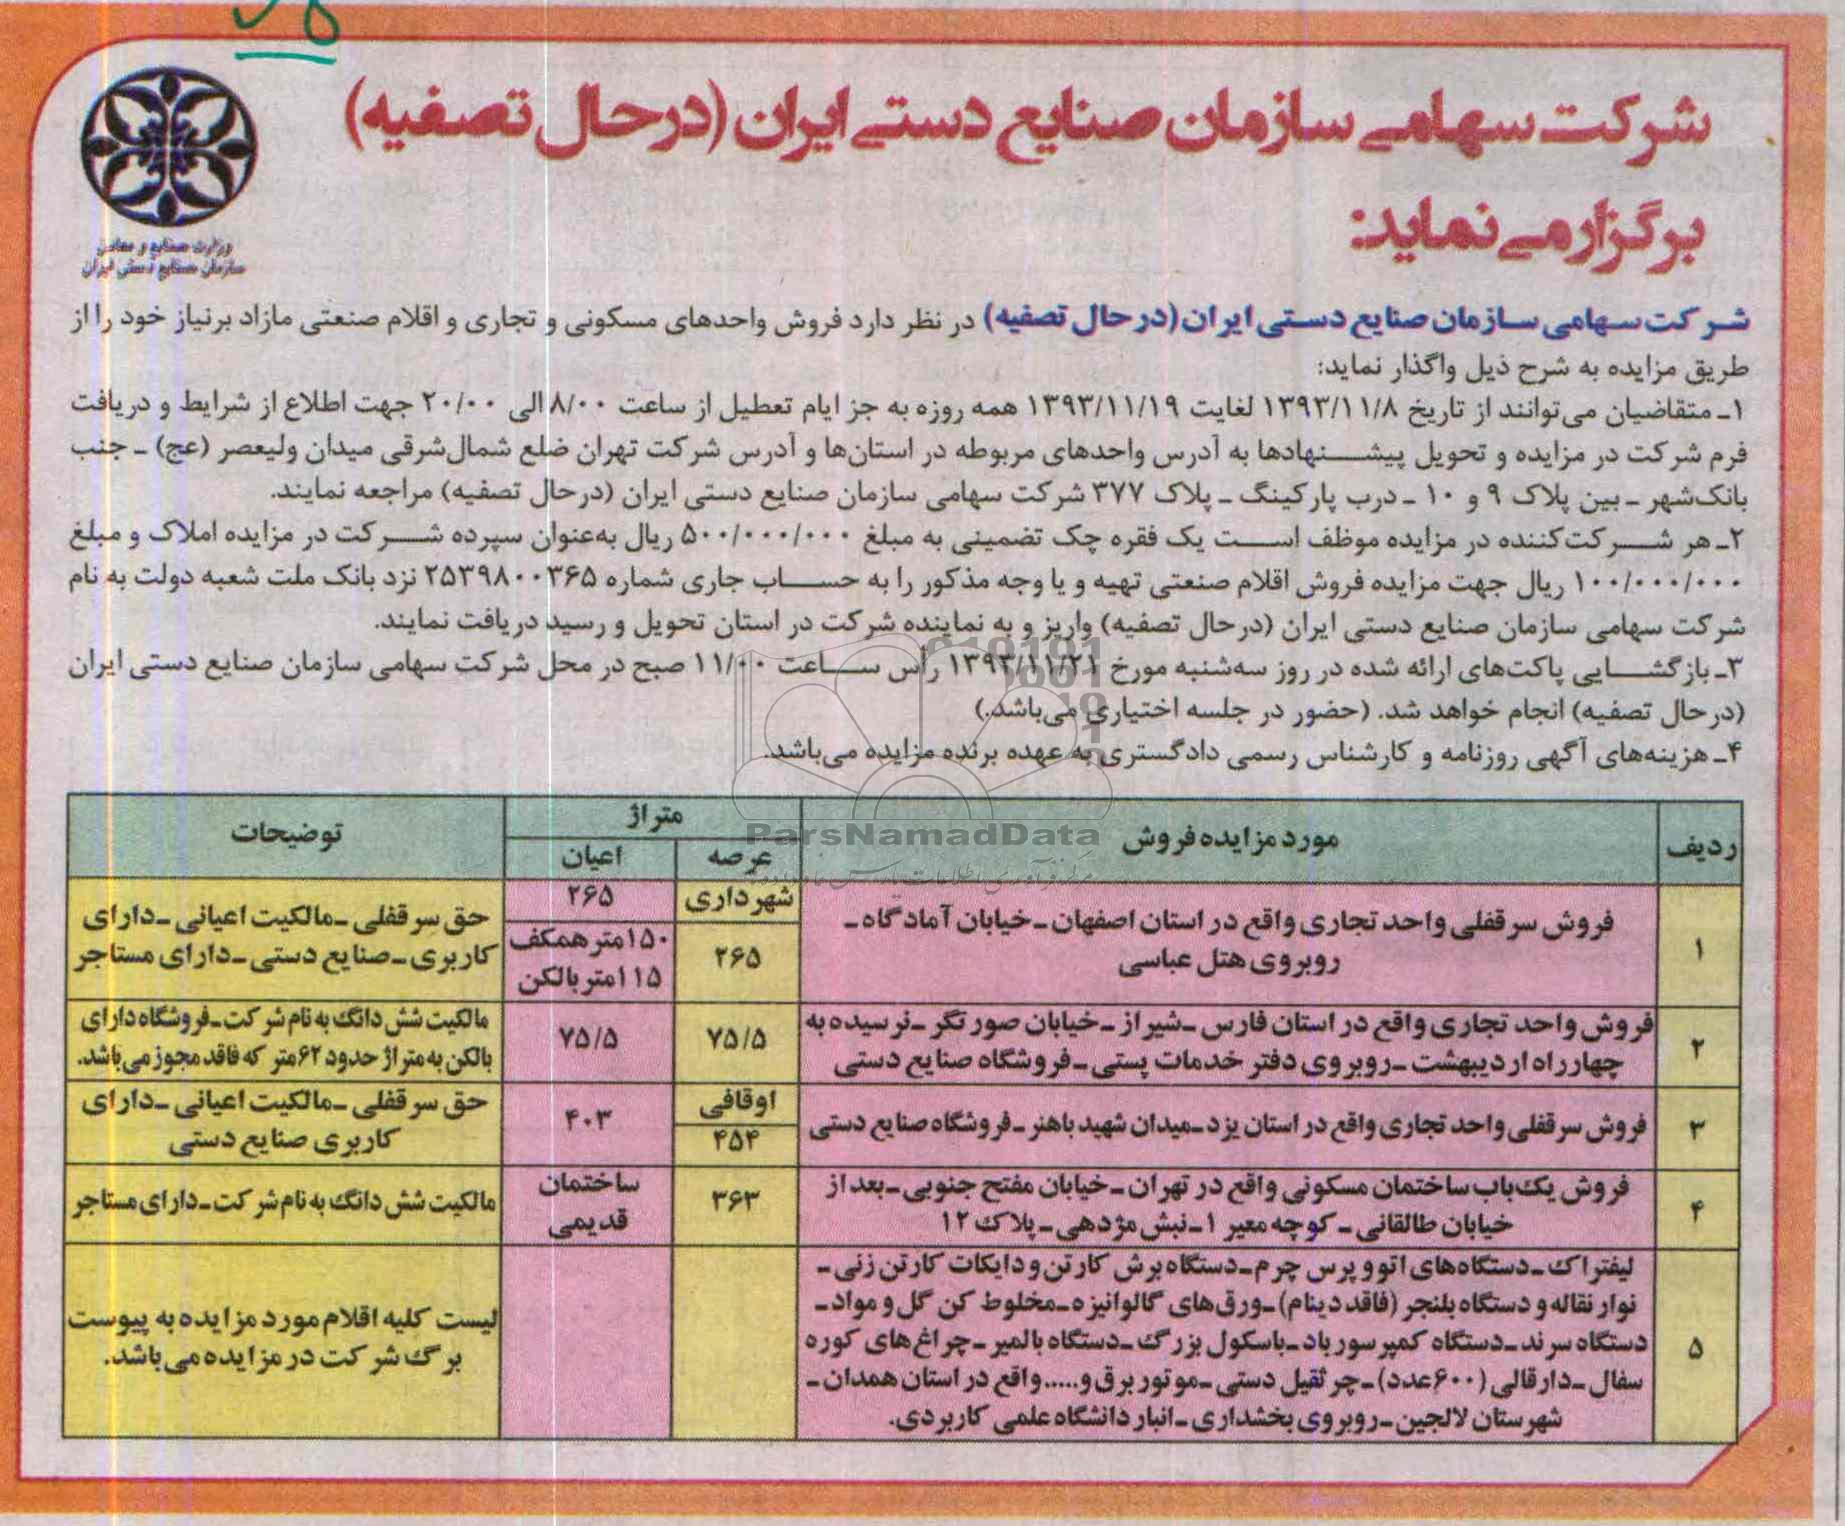 شرکت سهامی سازمان صنایع دستی ایران (درحال تصفیه)
برگزار می‌نماید:
وزارت صنایع و معادن
سازمان صنایع دستی ایران
شرکت سهامی سازمان صنایع دستی ایران (در حال تصفیه) در نظر دارد فروش واحدهای مسکونی و تجاری و اقلام صنعتی مازاد برنیاز خود را از
طریق مزایده به شرح ذیل واگذار نماید:
۱ـ متقاضیان می‌توانند از تاریخ ۱۳۹۳/۱۱/۸ لغایت ۱۳۹۳/۱۱/۱۹ همه روزه به جز ایام تعطیل از ساعت ۸/۰۰ الی ۲۰/۰۰ جهت اطلاع از شرایط و دریافت
فرم شرکت در مزایده و تحویل پیشنهادها به آدرس واحدهای مربوطه در استان‌ها و آدرس شرکت تهران ضلع شمال‌شرقی میدان ولیعصر (عج) ـ جنب
بانک‌شهر ـ بین پلاک ۹ و ۱۰ ـ درب پارکینگ ـ پلاک ۳۷۷ شرکت سهامی سازمان صنایع دستی ایران (درحال تصفیه) مراجعه نمایند.
۲ـ هر شرکت‌کننده در مزایده موظف است یک فقره چک تضمینی به مبلغ ۵۰۰/۰۰۰/۰۰۰ ریال به‌عنوان سپرده شرکت در مزایده املاک و مبلغ
۱۰۰/۰۰۰/۰۰۰ ریال جهت مزایده فروش اقلام صنعتی تهیه و یا وجه مذکور را به حساب جاری شماره ۲۵۳۹۸۰۰۳۶۵ نزد بانک ملت شعبه دولت به نام
شرکت سهامی سازمان صنایع دستی ایران (درحال تصفیه) واریز و به نماینده شرکت در استان تحویل و رسید دریافت نمایند.
۳ـ بازگشایی پاکت‌های ارائه شده در روز سه‌شنبه مورخ ۱۳۹۳/۱۱/۲۱ رأس ساعت ۱۱/۰۰ صبح در محل شرکت سهامی سازمان صنایع دستی ایران
(درحال تصفیه) انجام خواهد شد. (حضور در جلسه اختیاری می‌باشد.)
۴ـ هزینه‌های آگهی روزنامه و کارشناس رسمی دادگستری به عهده برنده مزایده می‌باشد.
ParsNamadData
ردیف
مورد مزایده فروش
متراژ
عرصه
اعیان
توضیحات
۱
فروش سرقفلی واحد تجاری واقع در استان اصفهان ـ خیابان آمادگاه ـ
روبروی هتل عباسی
شهرداری
۲۶۵
۲۶۵
۱۵۰متر همکف
۱۱۵متر بالکن
حق سرقفلی ـ مالکیت اعیانی ـ دارای
کاربری ـ صنایع دستی ـ دارای مستاجر
۲
فروش واحد تجاری واقع در استان فارس ـ شیراز ـ خیابان صورتگر ـ نرسیده به
چهارراه اردیبهشت ـ روبروی دفتر خدمات پستی ـ فروشگاه صنایع دستی
۷۵/۵
۷۵/۵
مالکیت شش دانگ به نام شرکت ـ فروشگاه دارای
بالکن به متراژ حدود ۶۲متر که فاقد مجوز می‌باشد.
۳
فروش سرقفلی واحد تجاری واقع در استان یزد ـ میدان شهید باهنر ـ فروشگاه صنایع دستی
اوقافی
۴۵۴
۴۰۳
حق سرقفلی ـ مالکیت اعیانی ـ دارای
کاربری صنایع دستی
۴
فروش یک‌باب ساختمان مسکونی واقع در تهران ـ خیابان مفتح جنوبی ـ بعد از
خیابان طالقانی ـ کوچه معیر ۱ ـ نبش مژدهی ـ پلاک ۱۲
۳۶۳
ساختمان
قدیمی
مالکیت شش دانگ به نام شرکت ـ دارای مستاجر
۵
لیفتراک ـ دستگاه‌های اتو و پرس چرم ـ دستگاه برش کارتن و دایکات کارتن زنی ـ
نوار نقاله و دستگاه بلنجر (فاقد دینام) ـ ورق‌های گالوانیزه ـ مخلوط کن گل و مواد ـ
دستگاه سرند ـ دستگاه کمپرسور باد ـ باسکول بزرگ ـ دستگاه بالمیر ـ چراغ‌های کوره
سفال ـ دار قالی (۶۰۰عدد) ـ جرثقیل دستی ـ موتور برق و..... واقع در استان همدان ـ
شهرستان لالجین ـ روبروی بخشداری ـ انبار دانشگاه علمی کاربردی.
لیست کلیه اقلام مورد مزایده به پیوست
برگ شرکت در مزایده می‌باشد.